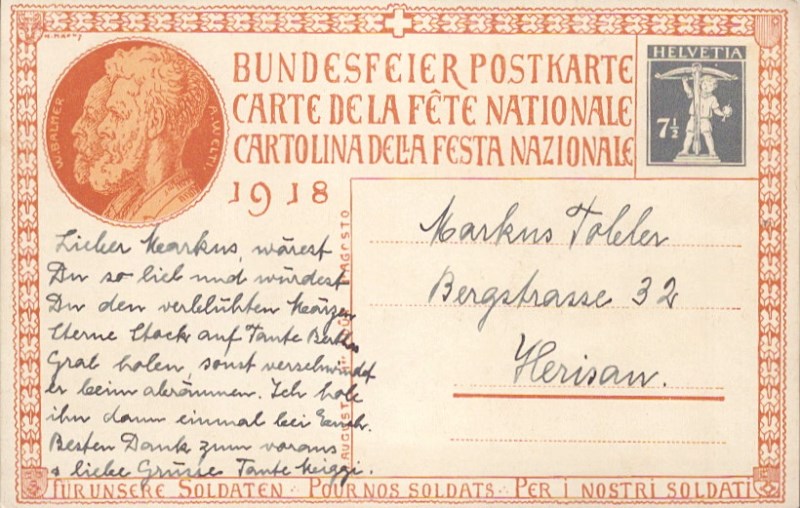 W. BALMER
A. WELTI
BUNDESFEIER POSTKARTE
CARTE DE LA FÊTE NATIONALE
CARTOLINA DELLA FESTA NAZIONALE
1918
HELVETIA
7½
Lieber Markus, wärest
Du so lieb und würdest
Du den verblühten Märzen
Sterne Stock auf Tante Berthas
Grab holen, sonst verschwindet
er beim abräumen. Ich hole
ihn dann einmal bei Euch.
Besten Dank zum voraus
& liebe Grüsse Tante Meiggi.
Markus Tobler
Bergstrasse 32
Herisau.
AUGUST
AGOSTO
FÜR UNSERE SOLDATEN · POUR NOS SOLDATS · PER I NOSTRI SOLDATI